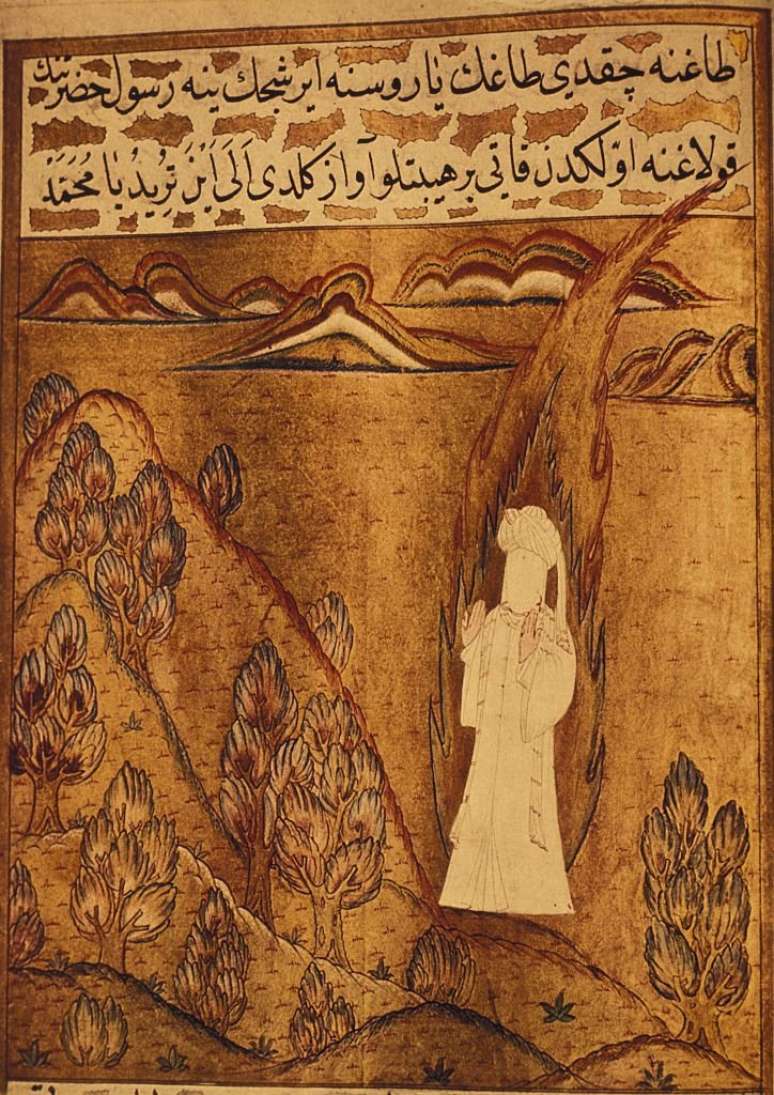 طاغنه چقدي طاغك ياروسنه ايرشجك ينه رسول حضرتنك
قولاغنه اوّلكدن قاتي بر هيبتلو آواز كلدى اَلَى اَيْنَ تَرِيدُ يَا مُحَمَّدْ